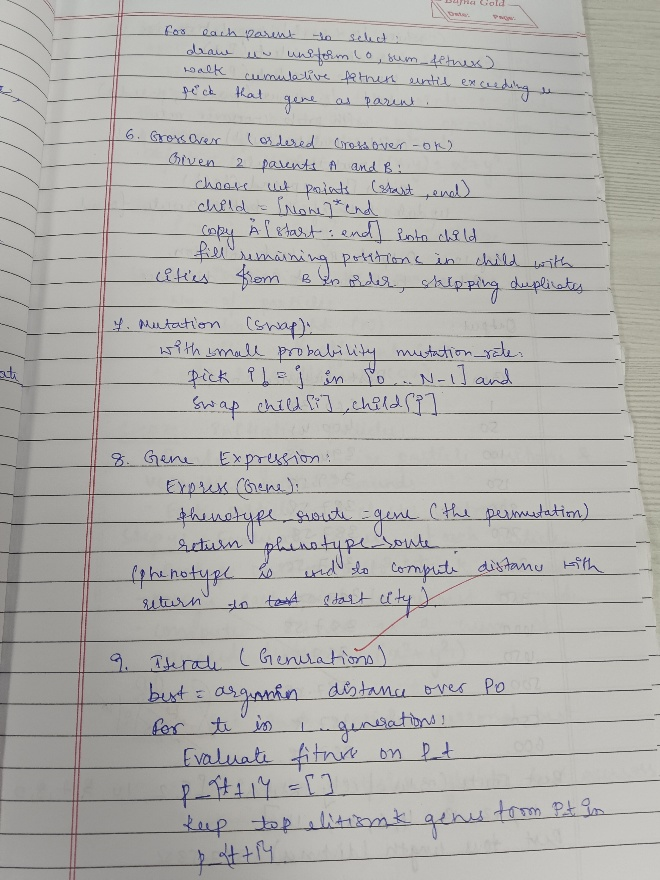 Bajna Gold
Date: Page:
For each parent to select:
draw u~ uniform(0, sum_fitness)
walk cumulative fitness until exceeding u
pick that gene as parent.
6. Crossover (ordered Crossover-OX)
Given 2 parents A and B:
choose cut points (start, end)
child = [None]*end
copy A[start:end] into child
fill remaining positions in child with
cities from B in order, skipping duplicates
7. Mutation (swap):
with small probability mutation_rate:
pick i!=j in [0 .. N-1] and
swap child[i], child[j]
8. Gene Expression:
Express(Gene):
phenotype_route = gene (the permutation)
return phenotype_route
(phenotype is used to compute distance with
return to start city)
9. Iterate (Generations)
best = argmin distance over P0
for t in 1 .. generations:
Evaluate fitness on P_t
p_{t+1} = []
keep top elitismk genes from Pt in
p_{t+1}